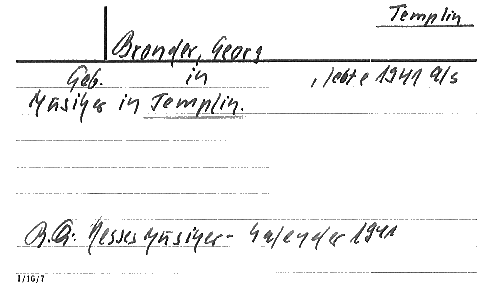 Templin
Bronder, Georg
Geb. in , lebte 1941 als
Musiker in Templin.
B.Q. Hesses Musiker-Kalender 1941
1/16/7